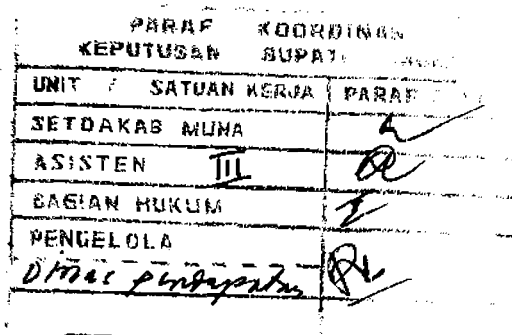 PARAF KOORDINASI
KEPUTUSAN BUPATI
UNIT / SATUAN KERJA PARAF
SETDAKAB MUNA
ASISTEN III
BAGIAN HUKUM
PENGELOLA
Dinas pendapatan